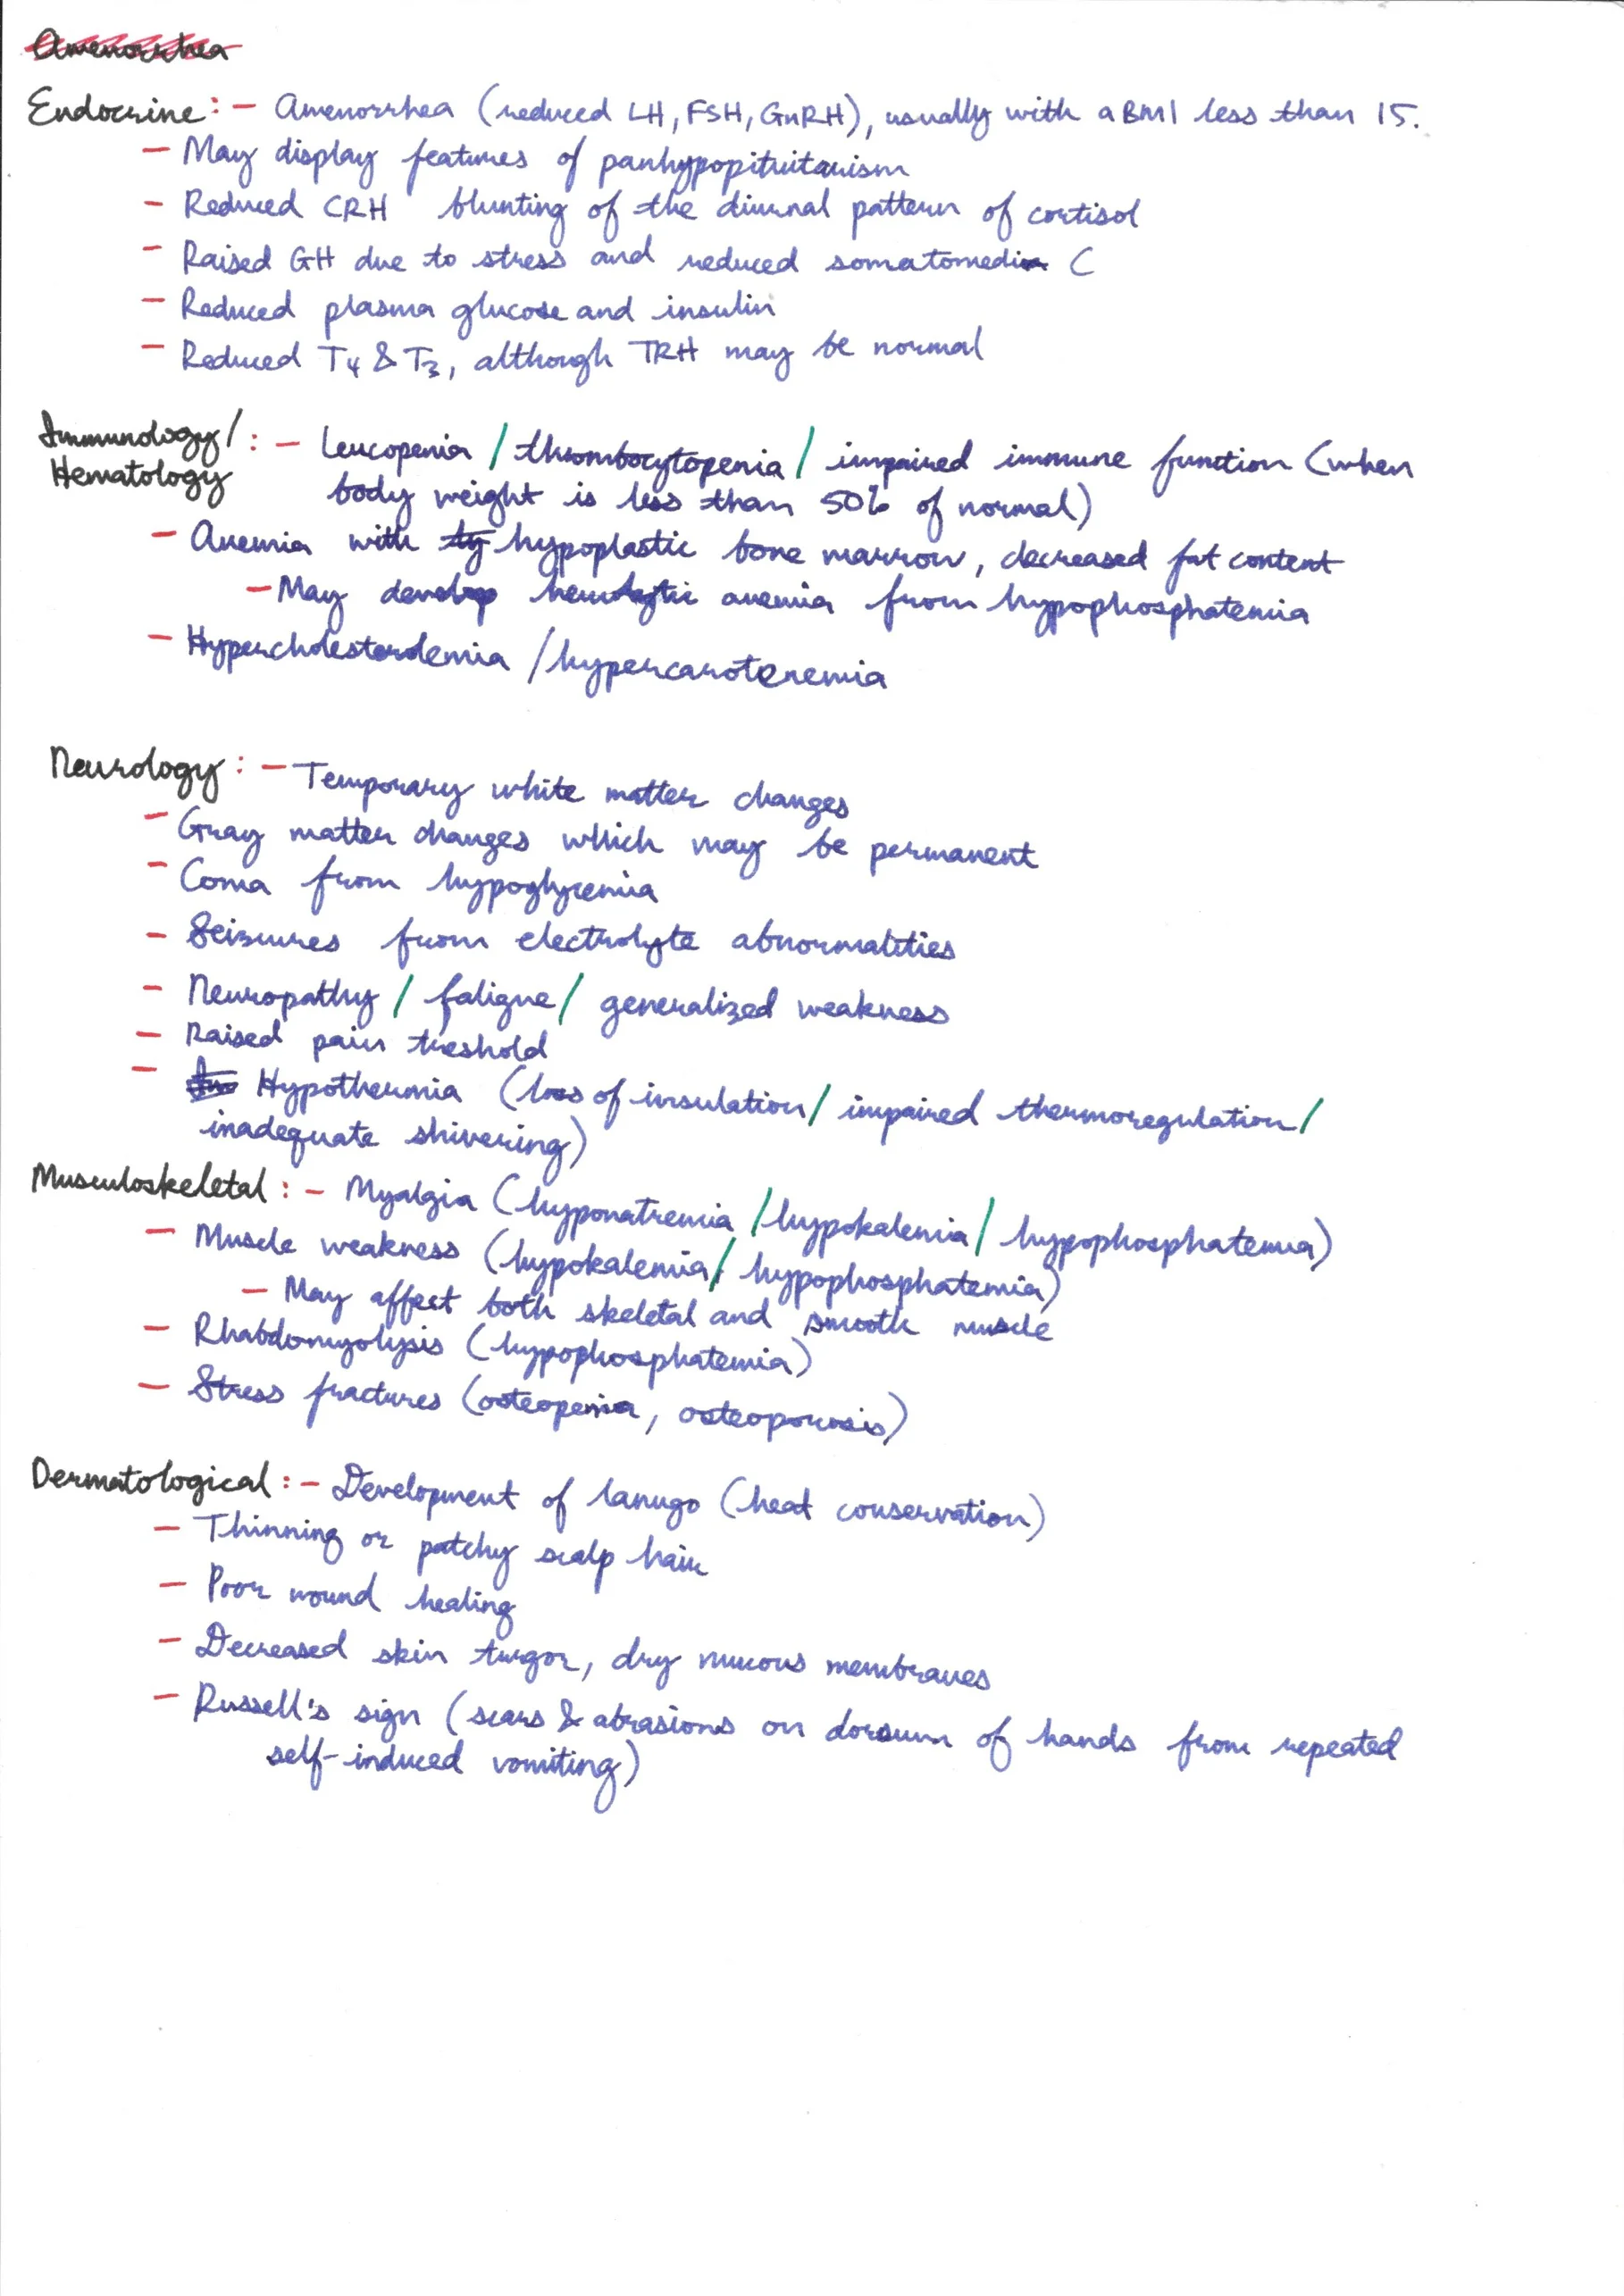 Amenorrhea
Endocrine: - Amenorrhea (reduced LH, FSH, GnRH), usually with a BMI less than 15.
- May display features of panhypopituitarism
- Reduced CRH blunting of the diurnal pattern of cortisol
- Raised GH due to stress and reduced somatomedin C
- Reduced plasma glucose and insulin
- Reduced T4 & T3, although TRH may be normal
Immunology/
Hematology : - Leucopenia / thrombocytopenia / impaired immune function (when
body weight is less than 50% of normal)
- Anemia with hypoplastic bone marrow, decreased fat content
- May develop hemolytic anemia from hypophosphatemia
- Hypercholesterolemia / hypercarotenemia
Neurology: - Temporary white matter changes
- Gray matter changes which may be permanent
- Coma from hypoglycemia
- Seizures from electrolyte abnormalities
- Neuropathy / fatigue / generalized weakness
- Raised pain treshold
- Hypothermia (loss of insulation / impaired thermoregulation /
inadequate shivering)
Musculoskeletal: - Myalgia (hyponatremia / hypokalemia / hypophosphatemia)
- Muscle weakness (hypokalemia / hypophosphatemia)
- May affect both skeletal and smooth muscle
- Rhabdomyolysis (hypophosphatemia)
- Stress fractures (osteopenia, osteoporosis)
Dermatological: - Development of lanugo (heat conservation)
- Thinning or patchy scalp hair
- Poor wound healing
- Decreased skin turgor, dry mucous membranes
- Russell's sign (scars & abrasions on dorsum of hands from repeated
self-induced vomiting)